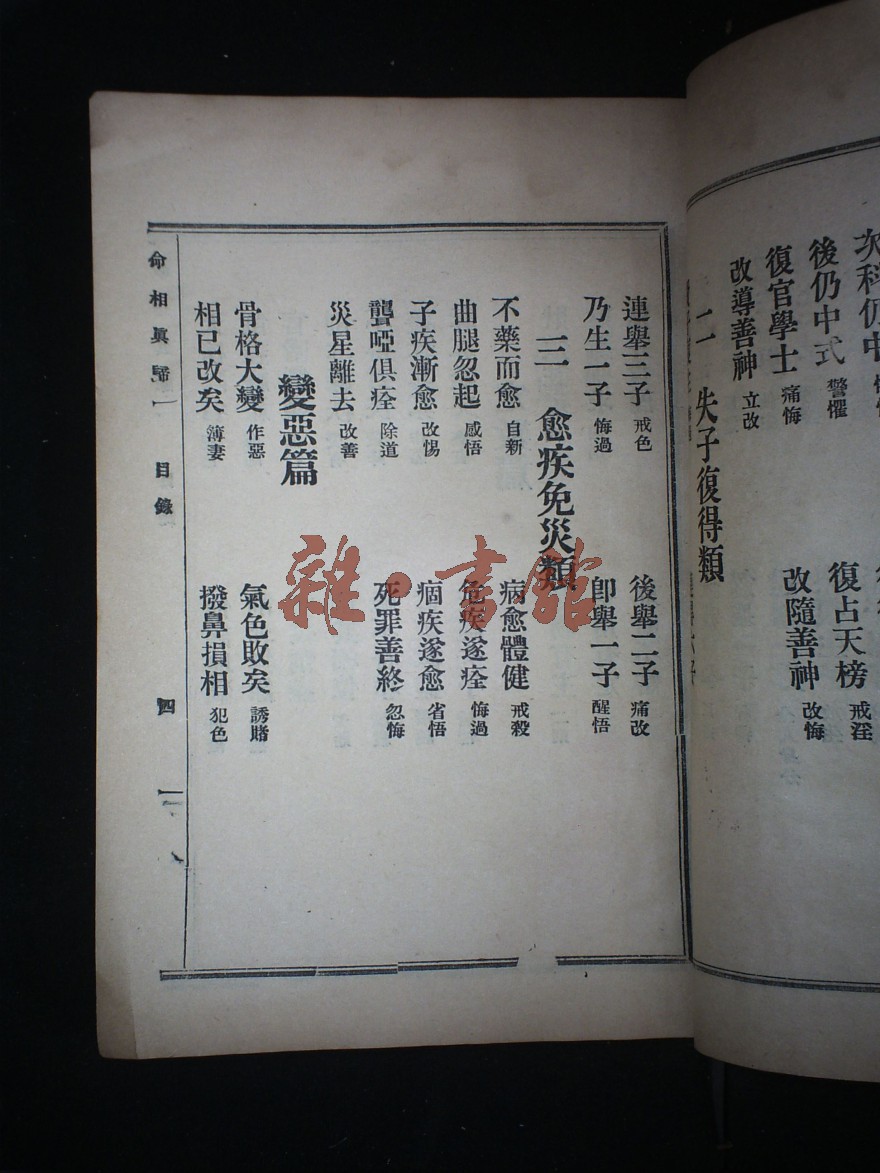 後仍中式 警懼
復占天榜 戒淫
復官學士 痛悔
改導善神 立改
改隨善神 改悔
二 失子復得類
連舉三子 戒色
後舉二子 痛改
乃生一子 悔過
卽舉一子 醒悟
三 愈疾免災類
不藥而愈 自新
病愈體健 戒殺
曲腿忽起 感悟
危疾遂痊 悔過
子疾漸愈 改惕
痼疾遂愈 省悟
聾啞俱痊 除道
死罪善終 忽悔
災星離去 改善
變惡篇
骨格大變 作惡
氣色敗矣 誘賭
相已改矣 簿妻
撥鼻損相 犯色
命相眞歸一 目錄 四
雜·書館